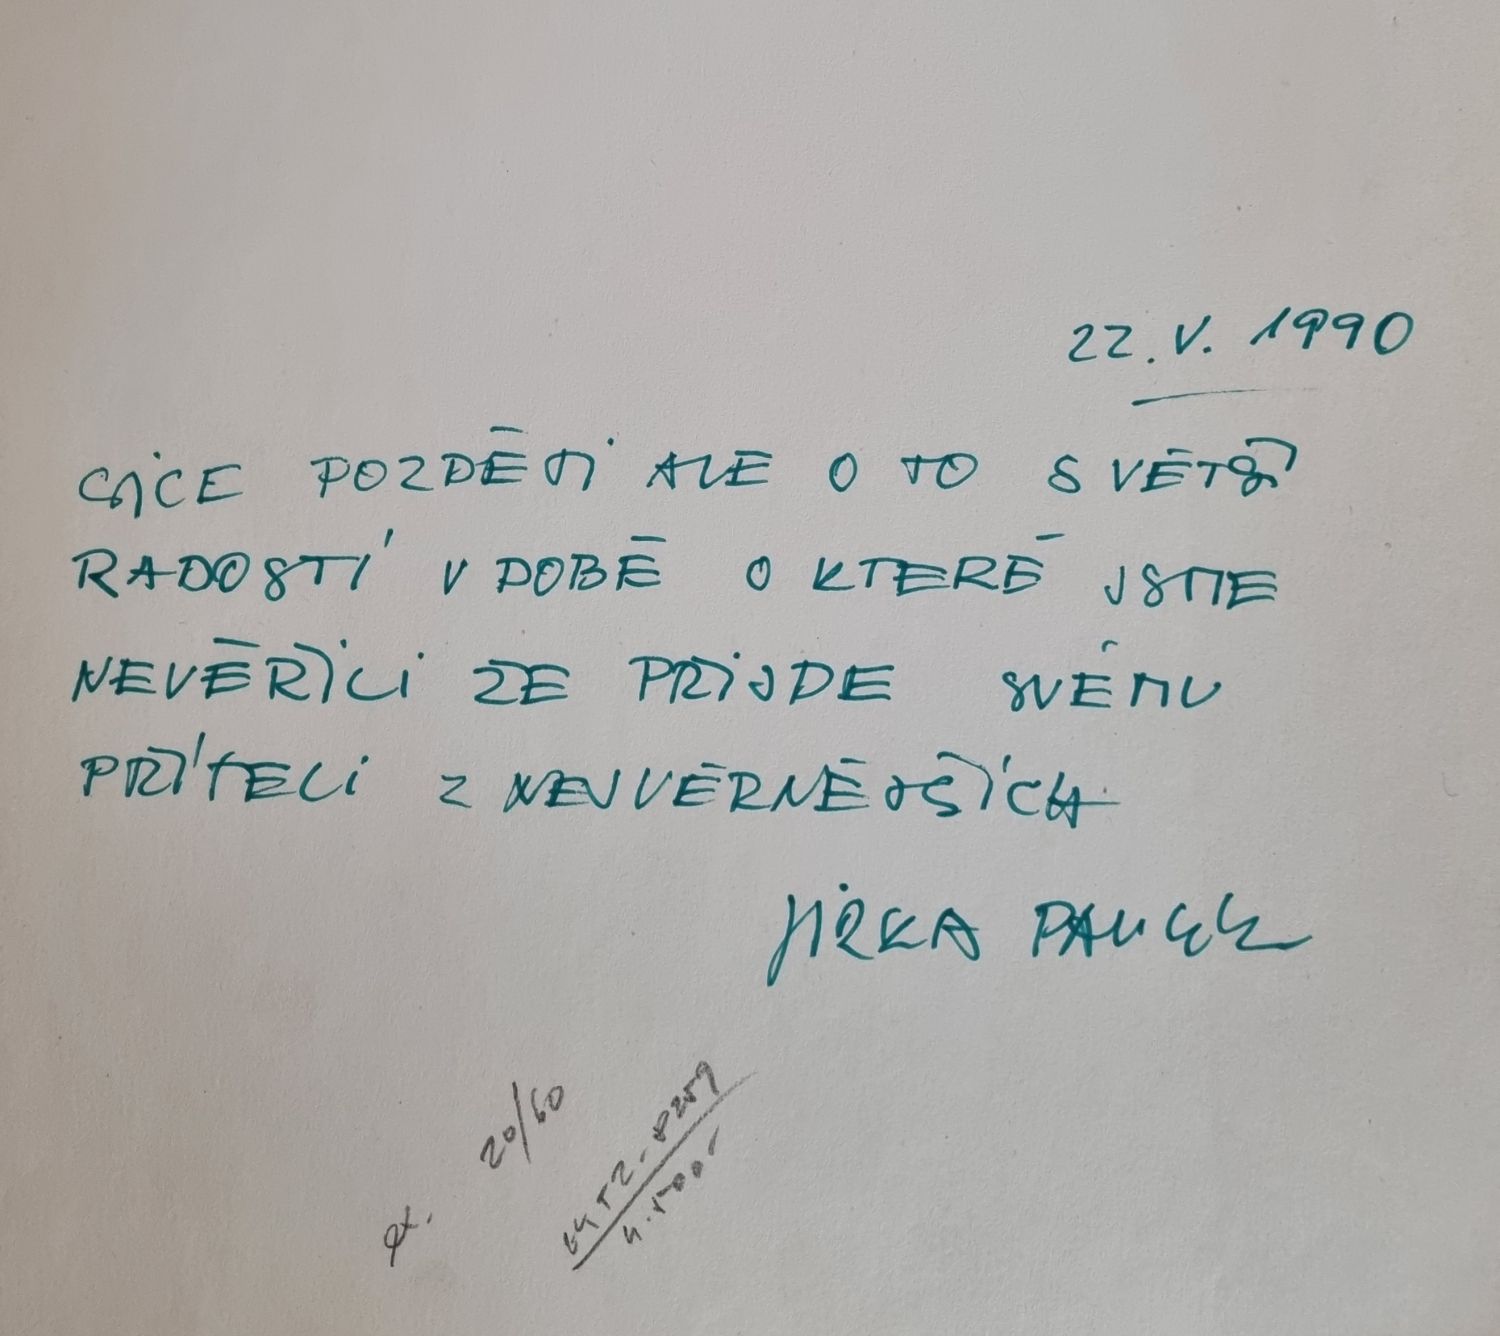 22. V. 1990
SICE POZDĚJI ALE O TO S VĚTŠÍ
RADOSTÍ V DOBĚ O KTERÉ JSME
NEVĚŘILI ŽE PŘIJDE SVÉMU
PŘÍTELI Z NEJVĚRNĚJŠÍCH
JIRKA
ex. 20/60
4.500,-